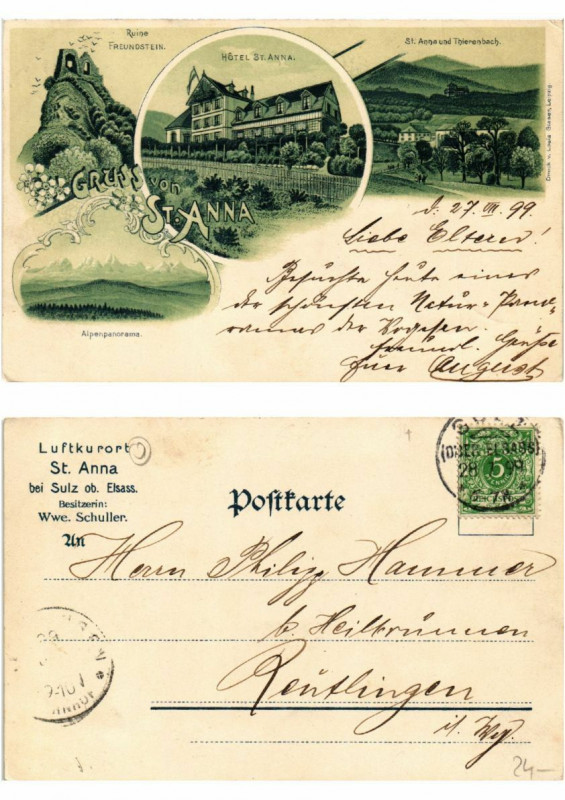 Ruine
FREUNDSTEIN.
HÔTEL ST. ANNA.
St. Anna und Thierenbach.
GRUSS von
ST. ANNA
Alpenpanorama.
d. 27. VII. 99.
Liebe Eltern!
Besuchte heute eines
der schönsten Natur-Pano-
ramas der Vogesen.
freundl. Grüße
Euer August
Luftkurort
St. Anna
bei Sulz ob. Elsass.
Besitzerin:
Wwe. Schuller.
Postkarte
SULZ
(OBER-ELSASS)
28 7 99
5
An
Herrn Philipp Hammer
b. Heilbrunnen
Reutlingen
i. Wg.
24—